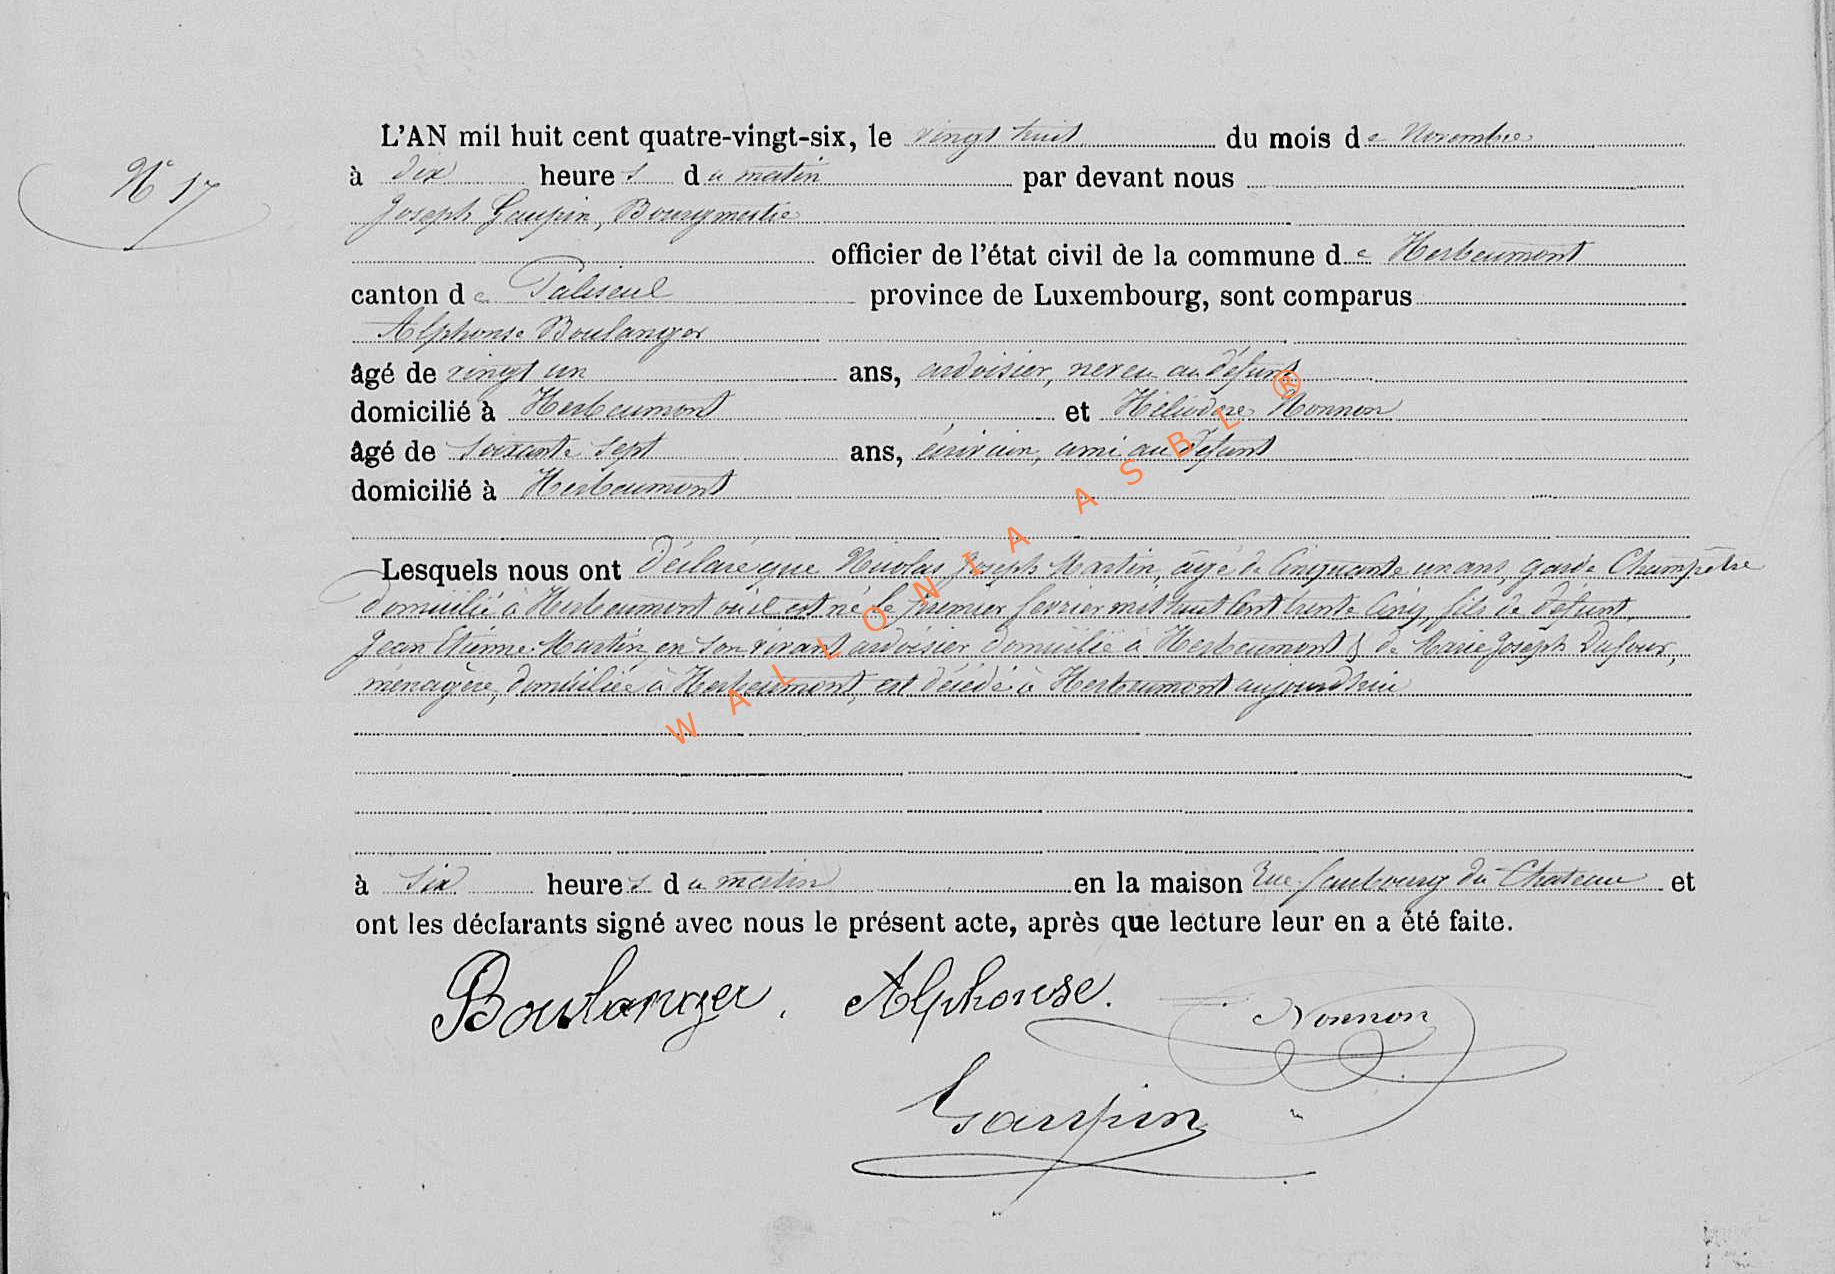 N° 17
L'AN mil huit cent quatre-vingt-six, le vingt huit du mois de Novembre
à dix heures du matin par devant nous
Joseph Gaupin, Bourgmestre
officier de l'état civil de la commune de Herbeumont
canton de Paliseul province de Luxembourg, sont comparus
Alphonse Boulanger
âgé de vingt un ans, ardoisier, neveu au défunt
domicilié à Herbeumont et Héliodore Nonnon
âgé de soixante sept ans, écrivain, ami au défunt
domicilié à Herbeumont
Lesquels nous ont déclaré que Nicolas Joseph Martin, âgé de Cinquante un ans, garde Champêtre
domicilié à Herbeumont où il est né le premier fevrier mil huit Cent trente Cinq, fils de défunt
Jean Etienne Martin, en son vivant ardoisier domicilié à Herbeumont & de Marie Joseph Dufour,
ménagère, domiciliée à Herbeumont, est décédé à Herbeumont aujourd'hui
à six heures du matin en la maison Rue faubourg du Chateau et
ont les déclarants signé avec nous le présent acte, après que lecture leur en a été faite.
Boulanger, Alphonse. Nonnon
Gaupin
WALLONIA ASBL ®